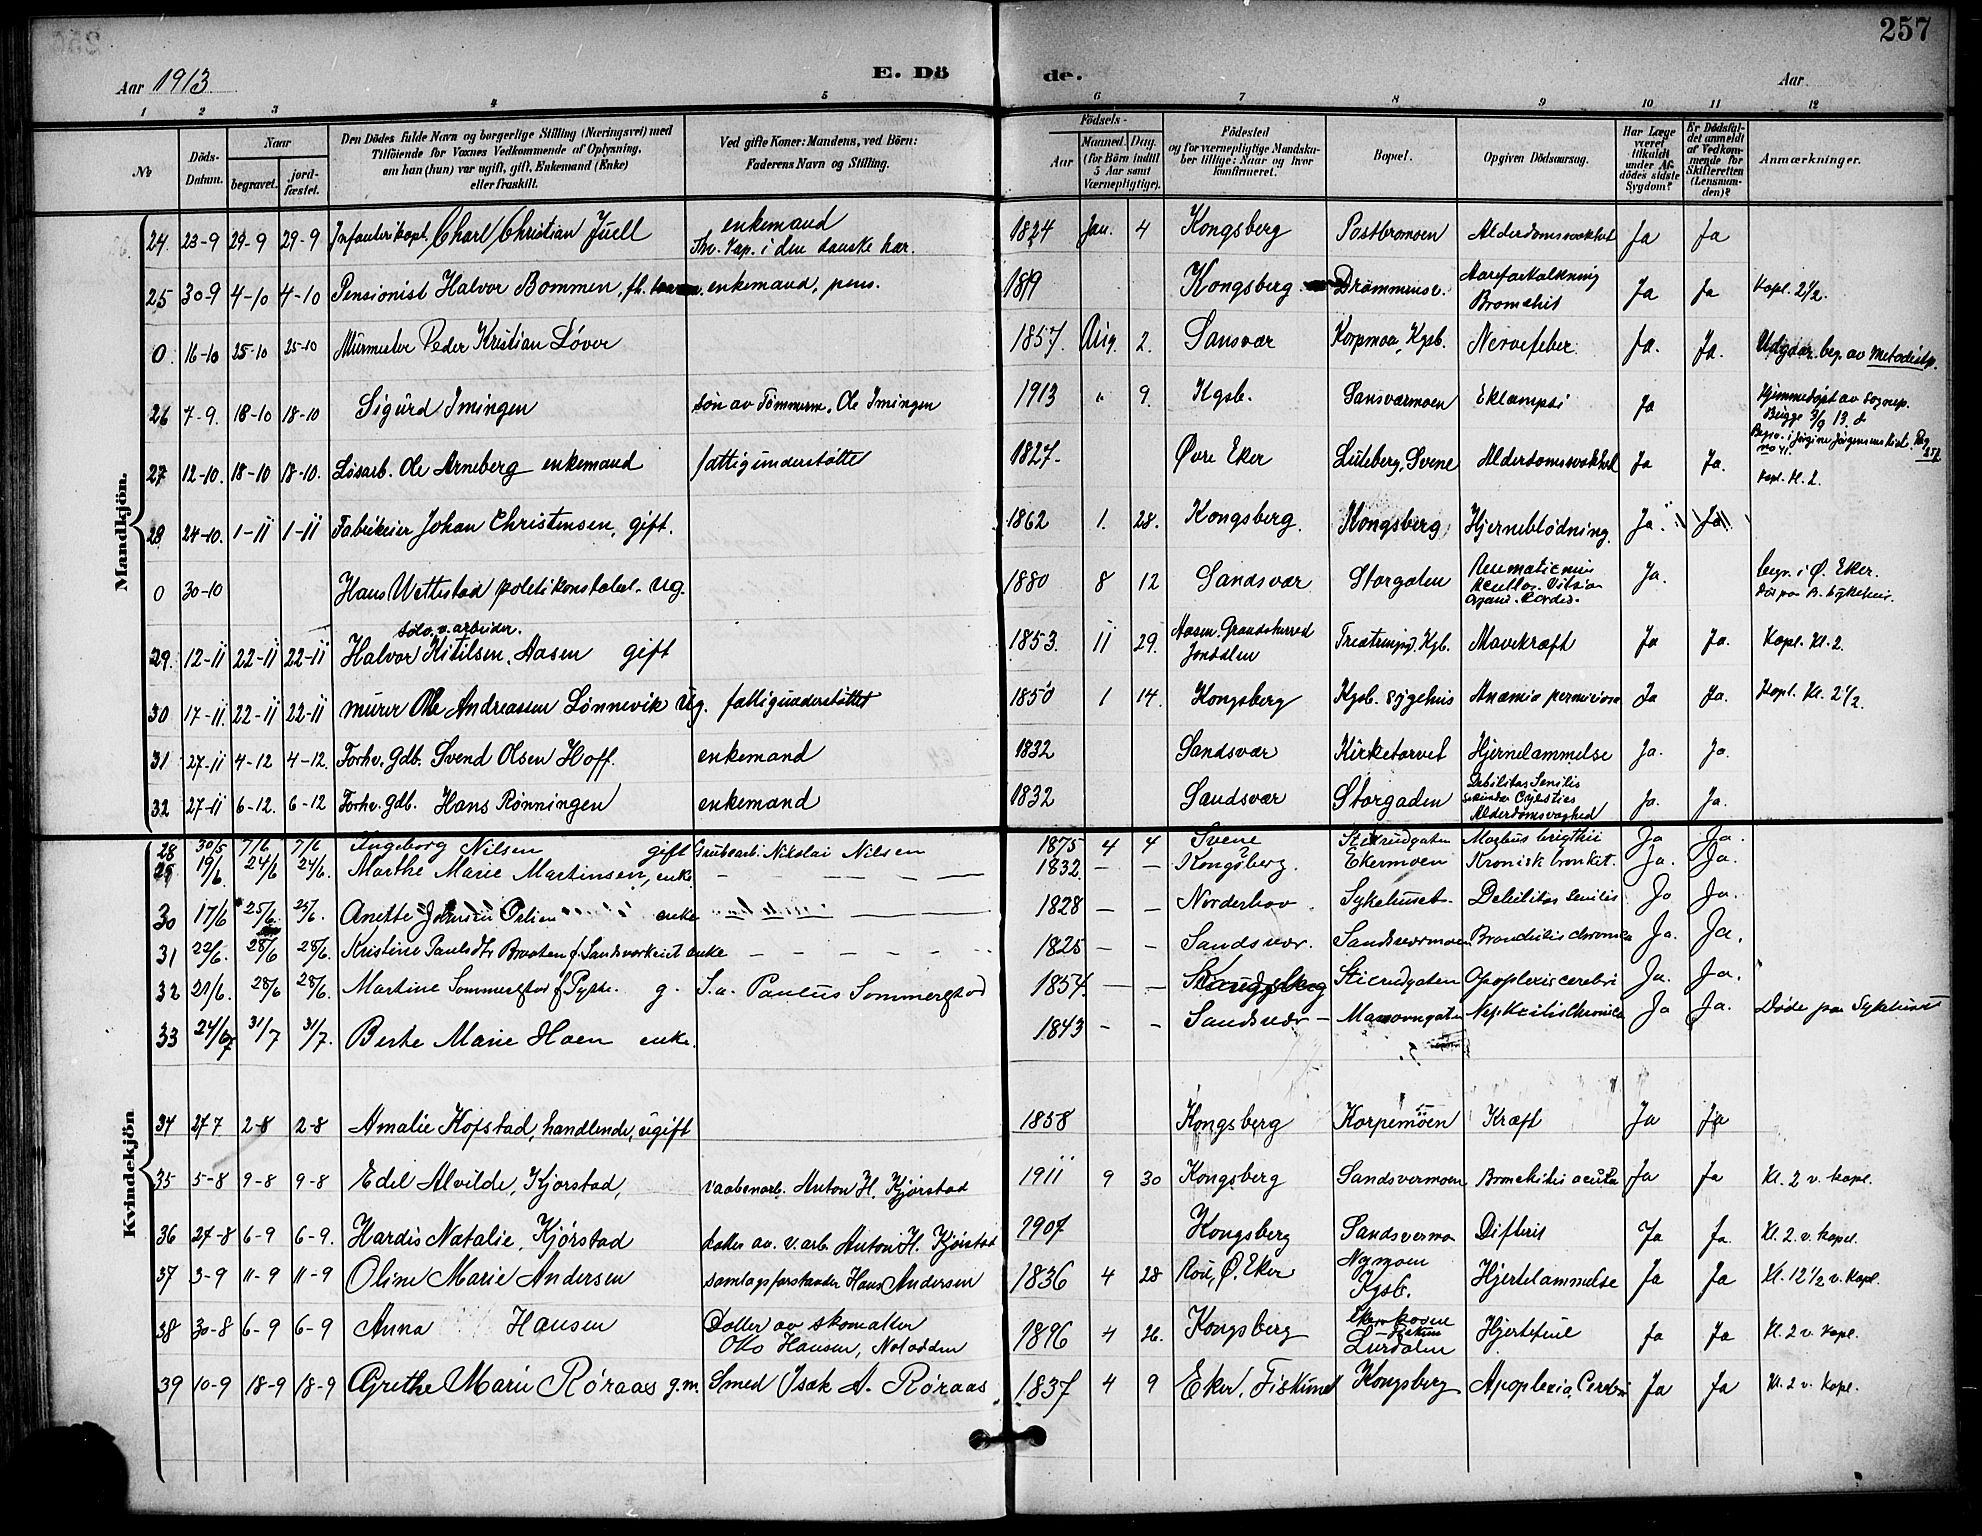 257
Aar 1913
E. Dö de.
Aar
1 2 3 4 5 6 7 8 9 10 11 12
No
Döds-Datum.
Naar
begravet.
jord-fæstet.
Den Dödes fulde Navn og borgerlige Stilling (Næringsvei) med
Tilföiende for Voxnes Vedkommende af Oplysning,
om han (hun) var ugift, gift, Enkemand (Enke)
eller fraskilt.
Ved gifte Koner: Mandens, ved Börn:
Faderens Navn og Stilling.
Födsels-
Aar
Maaned. Dag.
(for Börn indtil
5 Aar samt
Værnepligtige).
Födested
og for værnepligtige Mandska-
ber tillige: Naar og hvor
konfirmeret.
Bopæl.
Opgiven Dödsaarsag.
Har Læge
været
tilkaldt
under Af-
dödes sidste
Sygdom?
Er Dödsfal-
det anmeldt
af Vedkom-
mende for
Skifteretten
(Lensman-
den)?
Anmærkninger.
Mandkjön.
24. 23-9 29-9 29-9 Infanterikapt. Charl Christian Juell enkemand 1824 Jan. 4 Kongsberg Postbromoen Alderdomssvakhet Ja Ja
i den danske hær.
25 30-9 4-10 4-10 Pensionist Halvor Bommen, enkemand, pens. 1819 Kongsberg Drammensv. Aareforkalkning Ja Ja Kapl. 2 1/2.
Bronchit
0. 16-10 25-10 25-10 Murmester Peder Kristian Løver 1857. Aug. 2. Sansvær Korpmoa, Kgsb. Nervefeber. Ja. Ja. Udgaar. beg. av Metodistp.
26 7-9. 18-10 18-10 Sigurd Imingen søn av Tømmerm. Ole Imingen 1913 " 9. Kgsb. Sansværmoen Eklampsi Ja Hjemmedøpt av sognep.
Bugge 7/9 13.
27 12-10. 18-10 18-10. Løsarb. Ole Arneberg enkemand fattigunderstøttet 1827. Øvre Eker Luleberg, Svene Alderdomssvakhet Ja Ja.
Kapl. Kl. 2.
28 24-10. 1-11 1-11 Fabrikeier Johan Christensen, gift. 1862 1. 28. Kongsberg. Kongsberg Hjerneblødning. Ja. Ja
0 30-10 Hans Wettestad politikonstabel. ug. 1880 8 12 Sandsvær Storgaten Ja. begr. i Ø. Eker.
Død paa B. Sykehus.
sølv.v.arbeider.
29. 12-11 22-11 22-11 Halvor Kittilsen, Aasen gift 1853. 11 29. Aasen, Gransherred Kgb. Mavekræft Ja Ja. Kapl. Kl. 2.
Jondalen
30 17-11. 22-11 22-11 murer Ole Andreassen Lønnevik ug. fattigunderstøttet 1850 1 14. Kongsberg Kgsb. sygehus Anæmia perniciosa Ja Ja. Kapl. Kl. 2 1/2.
31 27-11 4-12 4-12. Forhv. gdb. Svend Olsen Hoff. enkemand 1832 Sandsvær Kirketorvet Hjertelammelse Ja. Ja.
32 27-11 6-12. 6-12 Forhv. gdb. Hans Rønningen enkemand 1832 Sandsvær Storgaden Debilitas Senilis Ja. Ja.
Alderdomsvaghed
Kvindekjön
28 30/5 7/6 7/6 Ingeborg Nilsen gift Grubearb. Nikolai Nilsen 1875 4 4 Svene Stierudgaten Morbus brigthii Ja Ja.
29 19/6. 24/6 24/6. Marthe Marie Martinsen, enke – – – – – – 1832. – – Kongsberg. Ekermoen Kronisk bronkit. Ja. Ja.
30 17/6 25/6. 25/6. Anette enke 1828 – – Norderhov Sykehuset. Debilitas senilis Ja Ja.
31 22/6. 28/6 28/6. Kristine Paulsdtr Braaten f. enke – – – – – – 1825 – – Sandsvær. Sandsværmoen Bronchitis chronica Ja. Ja.
32 21/6. 28/6 28/6. Martine Sommerstad f. g. S.a. Paulus Sommerstad 1854. – – Stierudgaten Apoplexis cerebri Ja. Ja.
33 24/7 31/7 31/7. Berte Marie Hoen enke. 1843 – – Sandsvær – Nephritis chronica Ja Ja. Døde paa Sykehuset
34 27-7 2-8 2-8 Amalie Kopstad, handlende, ugift 1858 Kongsberg Korpemoen Kræft Ja Ja
35 5-8 9-8 9-8 Edel Alvilde, Kjørstad, vaabenarb. Anton H. Kjørstad 1911 9 30 Kongsberg Sandsvermoen Bronchitis acuta Ja Ja Kl. 2 v. kapel.
36 27-8 6-9 6-9. Hardis Natalie, Kjørstad datter av v.arb. Anton H. Kjørstad 1907 Kongsberg Sandsvermo Difterit Ja Ja. Kl. 2. v. kapel.
37 3-9 11-9 11-9 Oline Marie Andersen samlagsforstander Hans Andersen 1836 4 28 Ø. Eker Nymoen Hjertelammelse Ja Ja Kl. 12 1/2 v. Kapl.
Kgsb.
38 30-8 6-9 6-9 Anna Hansen Datter av skomaker 1896 4 26. Kongsberg Hjertefeil Ja Ja Kl. 2 v. Kapl.
Otto Hansen, Notodden Lurdalen
39 10-9 18-9 18-9 Grethe Marie Røraas g.m. Smed Isak A. Røraas 1837 4 9 Eker, Fiskum Kongsberg Apoplexia Cerebri Ja Ja Kl. 2 v. Kapl.